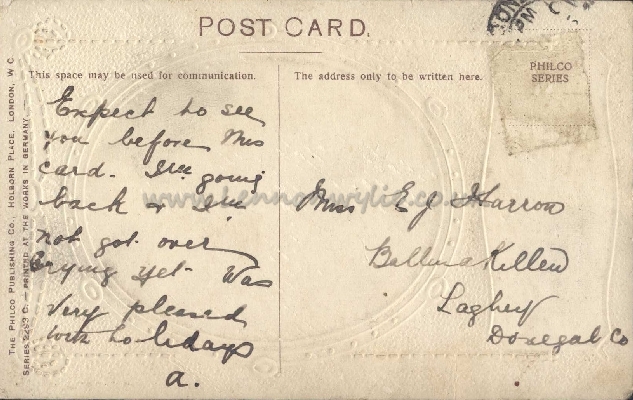 POST CARD.
This space may be used for communication.
The address only to be written here.
PHILCO
SERIES
Expect to see
you before this
card. I'm going
back & I'm
not got over
crying yet. Was
very pleased
with holidays
a.
Miss E J Harron
Ballinakillew
Laghey
Donegal Co
THE PHILCO PUBLISHING CO., HOLBORN PLACE, LONDON, W C
SERIES — PRINTED AT THE WORKS IN GERMANY
PM